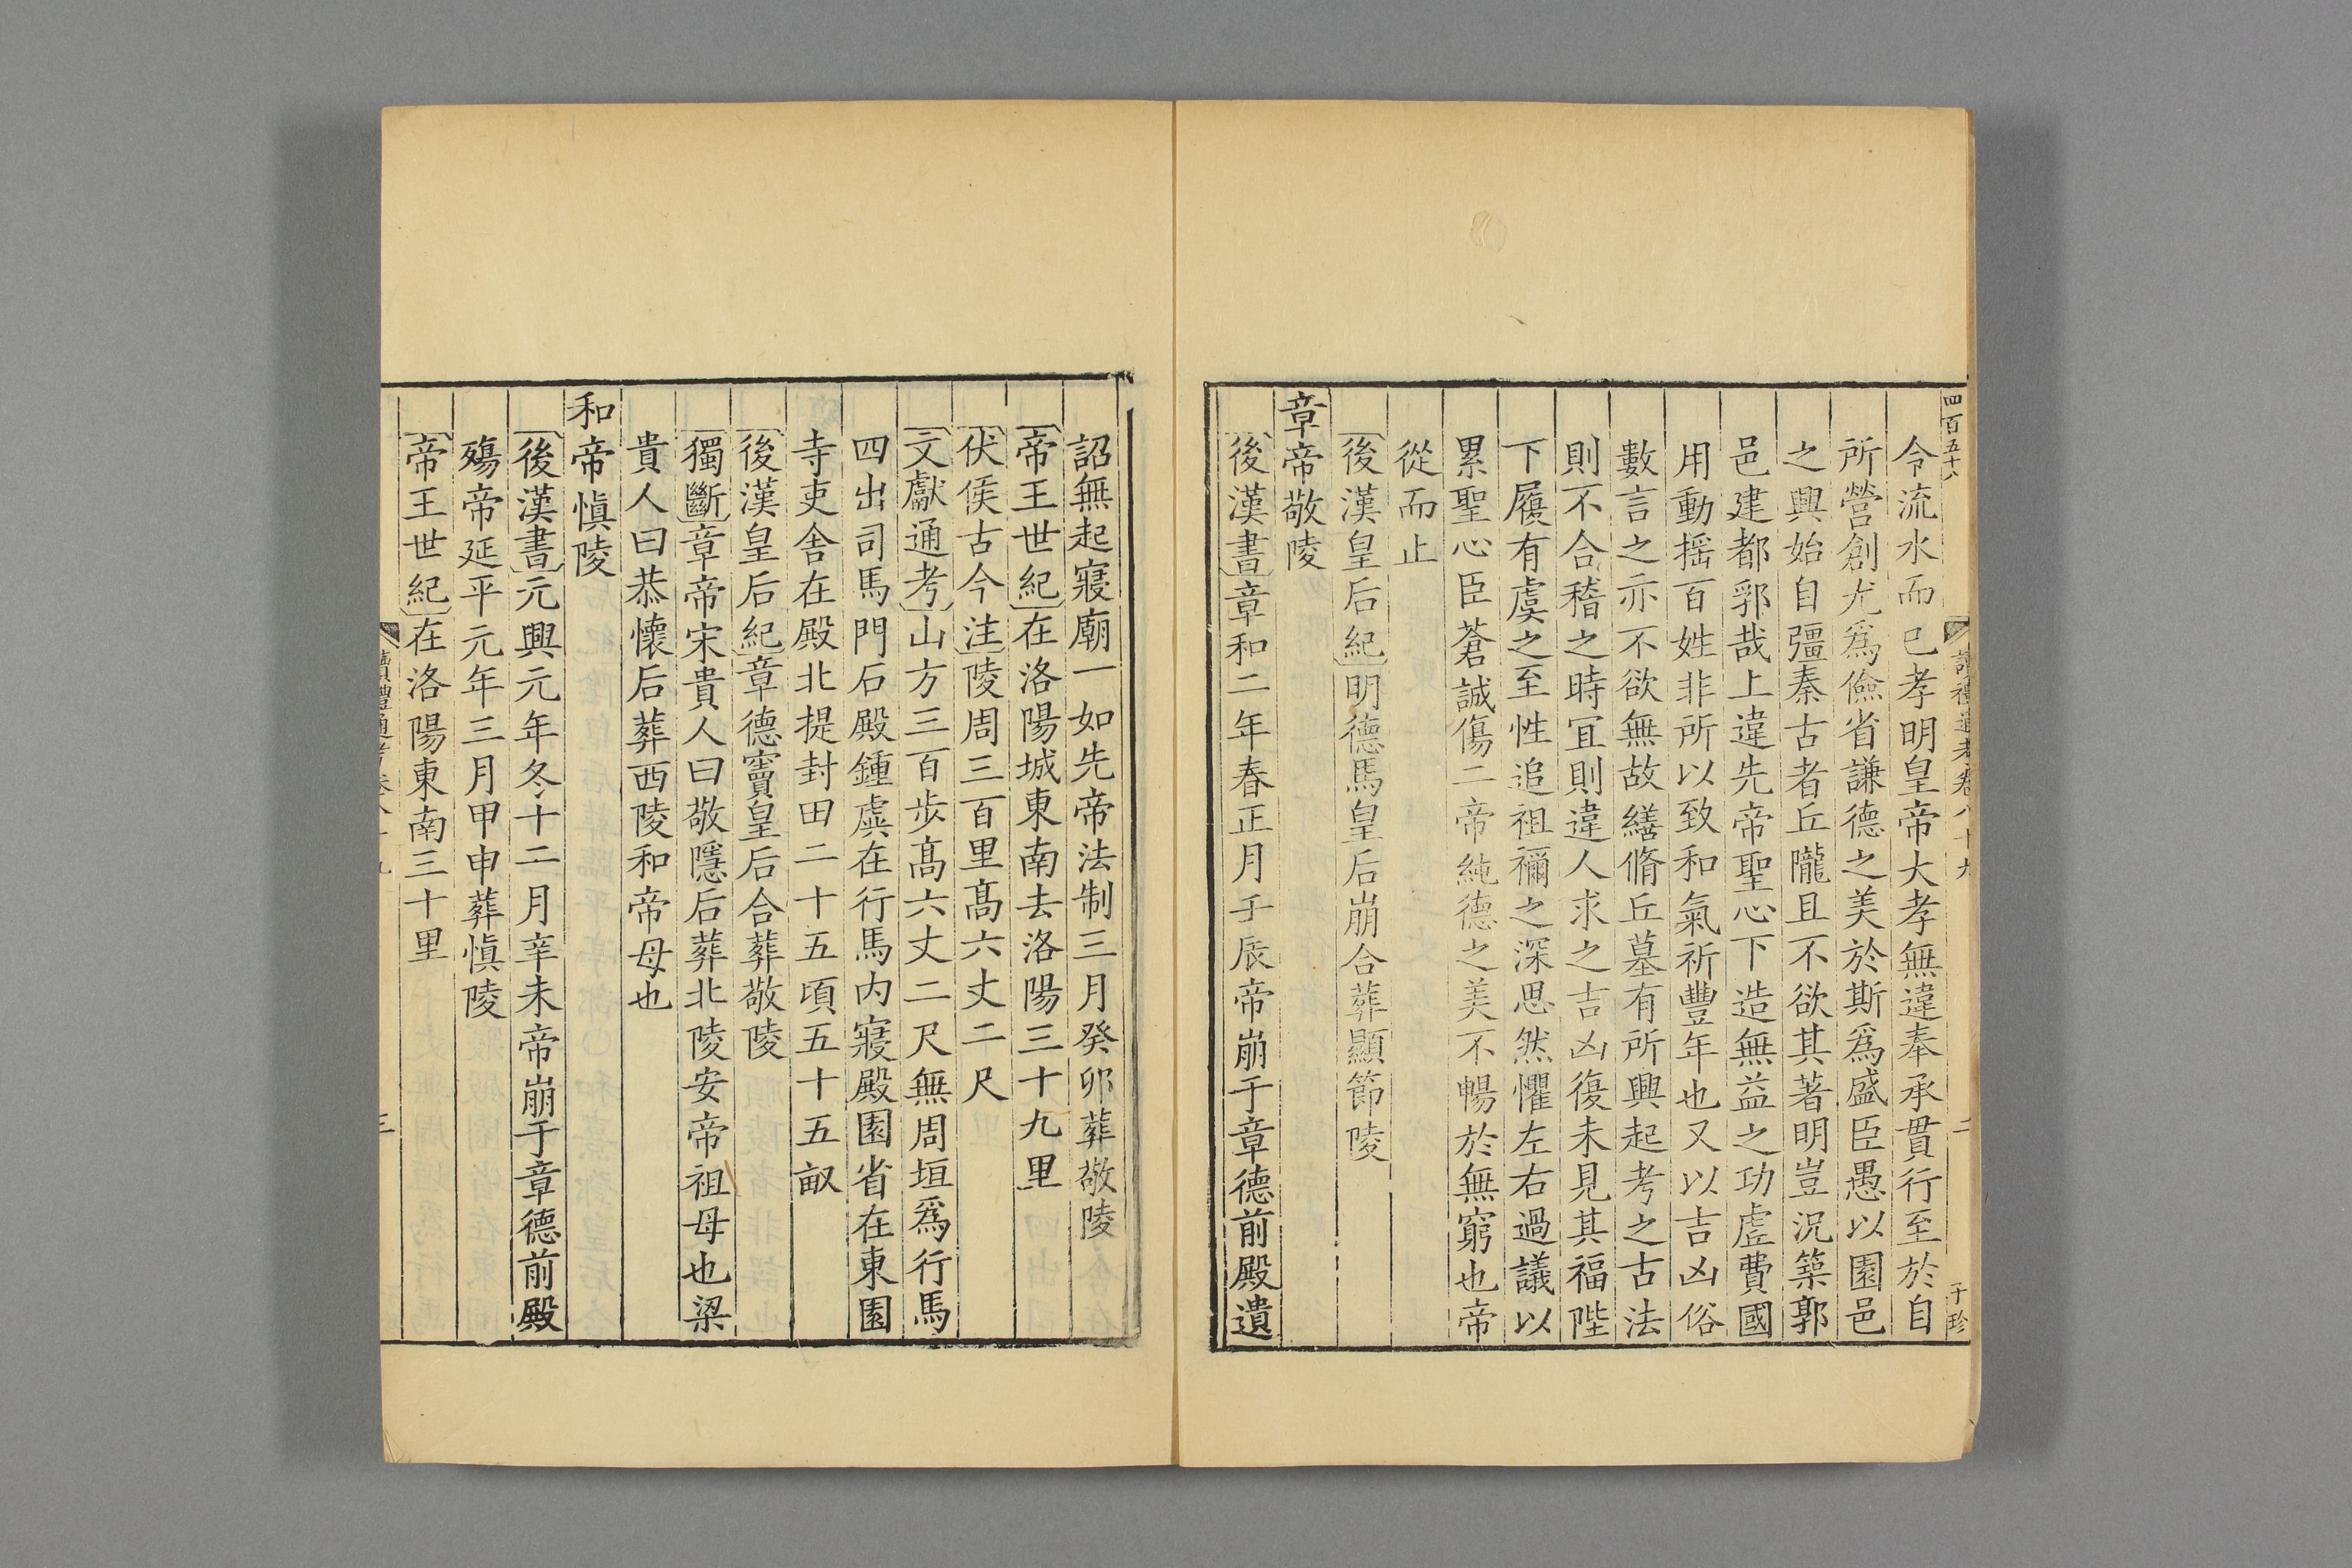 四百五十八
讀禮通考卷八十九
二
于珍
令流水而已孝明皇帝大孝無違奉承貫行至於自
所營創尤爲儉省謙德之美於斯爲盛臣愚以園邑
之興始自彊秦古者丘隴且不欲其著明豈況築郭
邑建都郛哉上違先帝聖心下造無益之功虛費國
用動搖百姓非所以致和氣祈豐年也又以吉凶俗
數言之亦不欲無故繕脩丘墓有所興起考之古法
則不合稽之時宜則違人求之吉凶復未見其福陛
下履有虞之至性追祖禰之深思然懼左右過議以
累聖心臣蒼誠傷二帝純德之美不暢於無窮也帝
從而止
後漢皇后紀明德馬皇后崩合葬顯節陵
章帝敬陵
後漢書章和二年春正月壬辰帝崩于章德前殿遺
詔無起寢廟一如先帝法制三月癸卯葬敬陵
帝王世紀在洛陽城東南去洛陽三十九里
伏侯古今注陵周三百里高六丈二尺
文獻通考山方三百步高六丈二尺無周垣爲行馬
四出司馬門石殿鍾虡在行馬內寢殿園省在東園
寺吏舍在殿北提封田二十五頃五十五畝
後漢皇后紀章德竇皇后合葬敬陵
獨斷章帝宋貴人曰敬隱后葬北陵安帝祖母也梁
貴人曰恭懷后葬西陵和帝母也
和帝愼陵
後漢書元興元年冬十二月辛未帝崩于章德前殿
殤帝延平元年三月甲申葬愼陵
帝王世紀在洛陽東南三十里
讀禮通考卷八十九
三